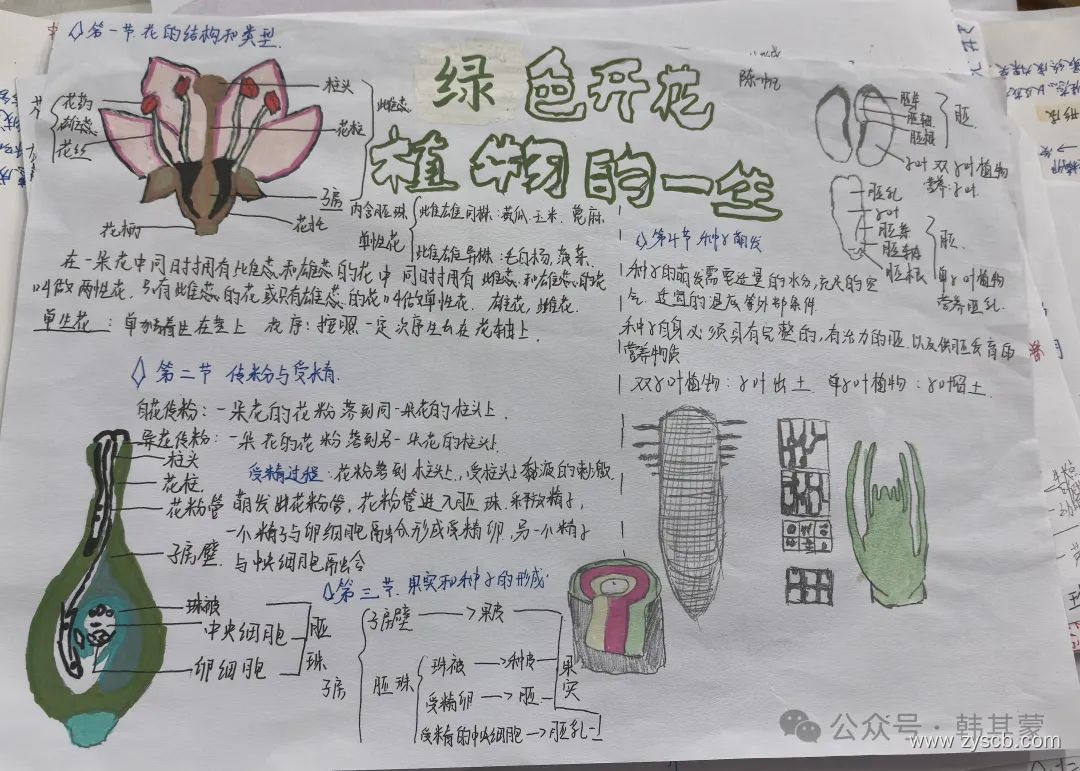 第一节 花的结构和类型.
绿色开花
植物的一生
陈帅帆
花药
雄蕊
花丝
花柄
柱头
花柱
子房
花托
雌蕊
内含胚珠
单性花
雌雄同株:黄瓜.玉米.蓖麻
雌雄异株:毛白杨.菠菜.
在一朵花中同时拥有雌蕊和雄蕊的花中 同时拥有 雌蕊和雄蕊的花
叫做两性花.只有雌蕊的花或只有雄蕊的花叫做单性花. 雄花,雌花.
单生花 : 单独着生在茎上 花序:按照一定次序生长在花轴上.
第二节 传粉与受精.
自花传粉:一朵花的花粉落到同一朵花的柱头上.
异花传粉:一朵花的花粉落到另一朵花的柱头上
受精过程:花粉落到柱头上,受柱头上黏液的刺激
萌发出花粉管,花粉管进入胚珠.释放精子,
一个精子与卵细胞融合形成受精卵,另一个精子
与中央细胞融合
柱头
花柱
花粉管
子房壁
珠被
中央细胞
卵细胞
胚珠
第三节.果实和种子的形成.
子房
子房壁→果皮
胚珠
珠被→种皮
受精卵→胚
受精的中央细胞→胚乳
果实
胚芽
胚轴
胚根
胚
子叶 双子叶植物
营养:子叶
胚乳
子叶
胚芽
胚轴
胚根
胚.
单子叶植物
营养胚乳.
第4节 种子萌发
种子的萌发需要适量的水分,充足的空
气.适宜的温度等外部条件
种子自身必须具有完整的,有活力的胚.以及供胚发育的
营养物质
双子叶植物:子叶出土 单子叶植物:子叶留土.
公众号·韩其蒙
www.zyscb.com